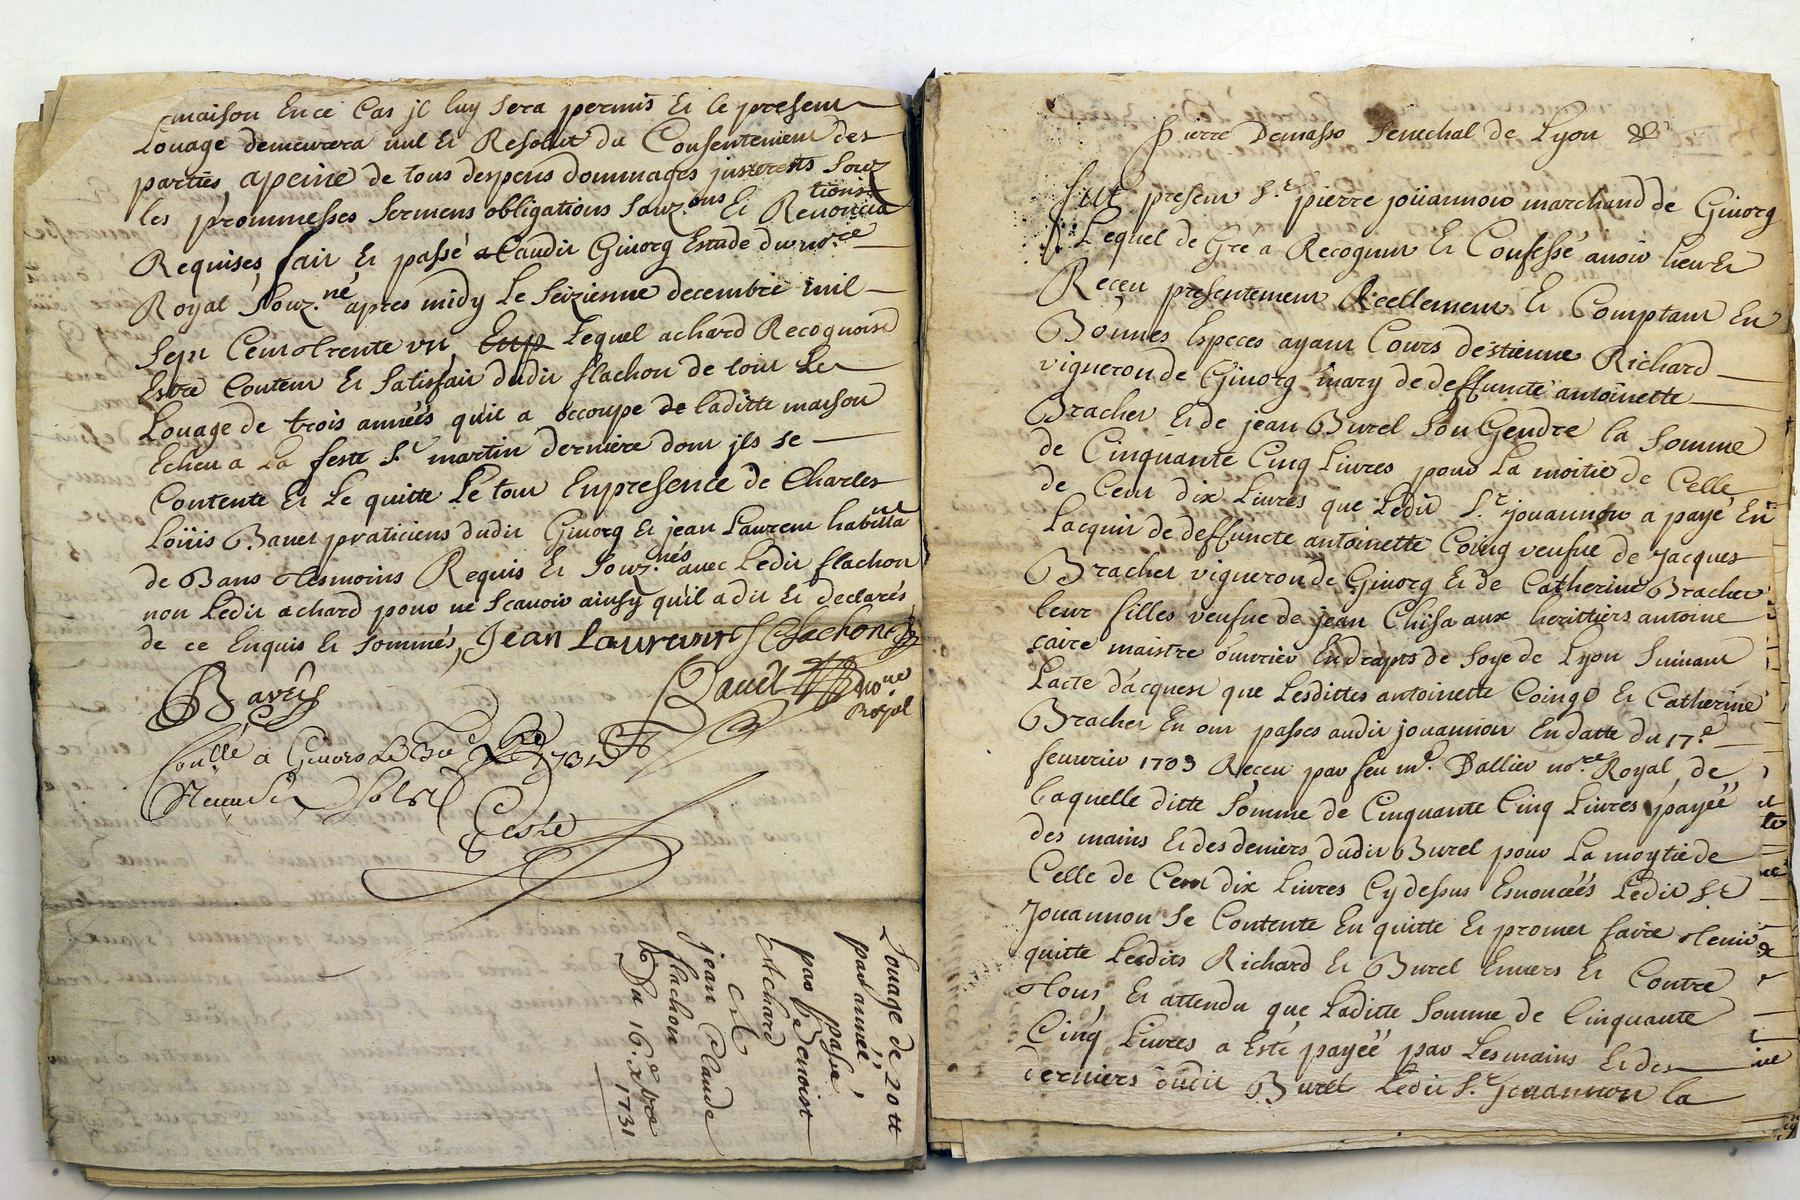 maison En ce Cas jl luy sera permis Et le present
Louage demeurera nul Et Resolut du Consentement des
parties apeine de tous despens dommages jnterests souz
les prommesses sermens obligations souz.ons Et Renoncia
tions
Requises, fait Et passé a Caudit Givorg Estude du no.re
Royal souz.né apres midy Le seizienne decembre mil
sept Cent trente vn, Lequel achard Recognoist
Estre Content Et satisfait dudit flachon de tout Le
Louage de trois années qu'il a occoupe de laditte maison
Echeu a La feste S.t martin derniere dont jls se
Contente Et Le quitte Le tout En presence de Charles
Loüis Bauet praticiens dudit Givorg Et jean Laurent habitta
nt
de Bans tesmoins Requis Et souz.nés avec Ledit flachon
non Ledit achard pour ne scauoir ainsy qu'il a dit Et declarés
de ce Enquis Et sommés, Jean Laurant J C flachon
Bavet
Bauet no.re
Royal
Con.llé a Givors Le 1731
Receu
Coste
Louage de 20 tt
par année,
passé
par Benoist
achard
a
jean Claude
flachon
Du 16.e xbre
1731
pierre Demasso senechal de Lyon &c
fut present S.r pierre joüannon marchand de Givorg
Lequel de Gré a Recognu Et Confessé auoir heu Et
Reçeu presentement Réellement Et Comptant En
Bonnes Especes ayant Cours d'Estienne Richard
vigneron de Givorg mary de deffuncte antoinette
Brachet Et de jean Burel son Gendre la somme
de Cinquante Cinq Livres pour La moitié de Celle
de Cent dix Livres que Ledit S.r jouannon a payé En
Lacquit de deffuncte antoinette Coing veufue de Jacques
Brachet vigneron de Givorg Et de Catherine Brachet
leur filles veufue de jean Chisa aux herittiers antoine
caire maistre ouurier En drapts de soye de Lyon suiuant
Lacte d'acquest que Lesdittes antoinette Coing Et Catherine
Brachet En ont passés audit jouannon En datte du 17.e
feurrier 1703 Reçeu par feu m.e Dallier no.re Royal, de
Laquelle ditte somme de Cinquante Cinq Livres payéé
des mains Et des deniers dudit Burel pour La moytié de
Celle de Cent dix Livres Cy dessus Enoncéés Ledit S.r
Jouannon se Contente En quitte Et promet faire tenir
quitte Lesdits Richard Et Burel Enuers Et Contre
tous, Et attendu que Laditte somme de Cinquante
Cinq Livres a Esté payéé par Les mains Et des
derniers dudit Burel Ledit S.r jouannon la